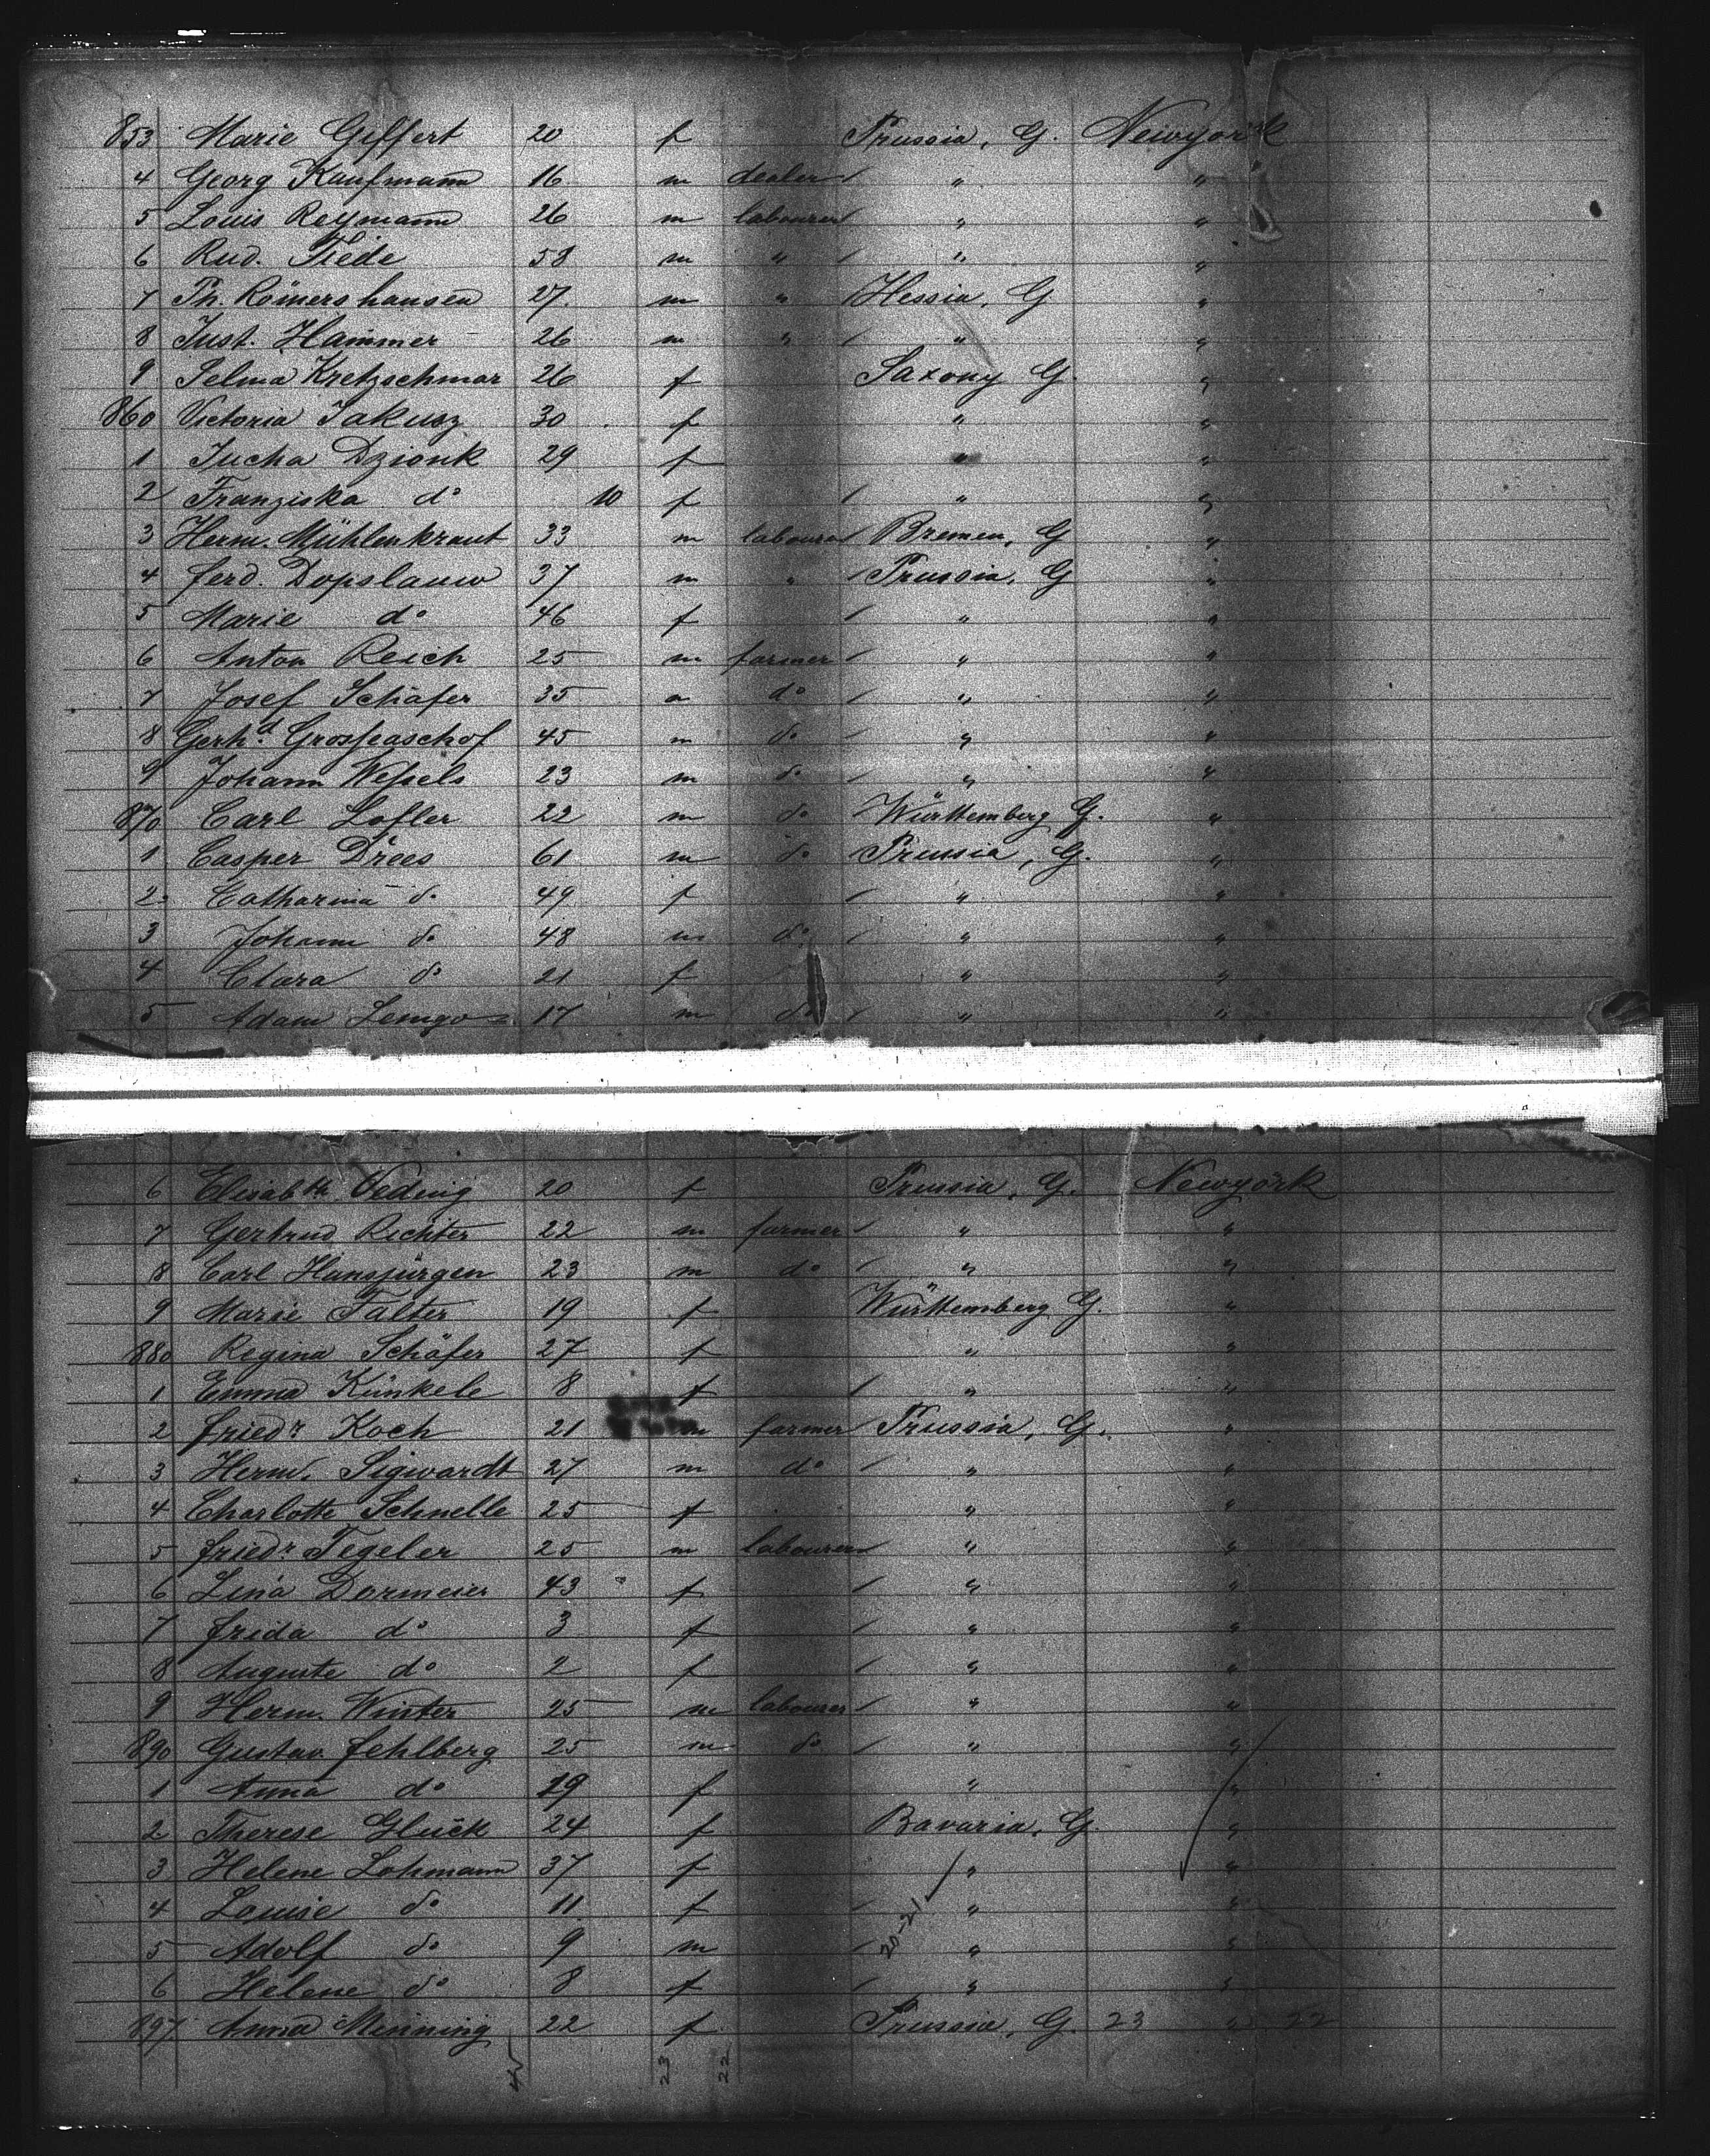 853 Marie Geffert 20 f Prussia, G. Newyork
4 Georg Kaufmann 16 m dealer " "
5 Louis Reymann 26 m labourer " "
6 Rud. Tiede 58 m " " "
7 Ph. Römershausen 27 m " Hessia, G "
8 Just. Hammer 26 m " " "
9 Selma Kretzschmar 26 f Saxony G. "
860 Victoria Jakusz 30 f " "
1 Jucha Dzionk 29 f " "
2 Franziska do 10 f " "
3 Herm. Mühlenkraut 33 m labourer Bremen, G "
4 Ferd. Dopslauw 37 m " Prussia, G "
5 Marie do 46 f " "
6 Anton Reich 25 m farmer " "
7 Josef Schäfer 35 m do " "
8 Gerhd. Grossfeaschof 45 m do " "
9 Johann Wessels 23 m do " "
870 Carl Lofler 22 m do Württemberg G. "
1 Casper Drees 61 m do Prussia, G. "
2 Catharina do 49 f " "
3 Johann do 48 m do " "
4 Clara do 21 f " "
5 Adam Lemgo 17 m do " "
6 Elisabth Veding 20 f Prussia, G. Newyork
7 Gertrud Richter 22 m farmer " "
8 Carl Hansjürgen 23 m do " "
9 Marie Falter 19 f Württemberg G. "
880 Regina Schäfer 27 f " "
1 Emma Künkele 8 f " "
2 Friedr Koch 21 m farmer Prussia, G. "
3 Herm. Sigwardt 27 m do " "
4 Charlotte Schnelle 25 f " "
5 Friedr Tegeler 25 m labourer " "
6 Lina Dormeier 43 f " "
7 Frida do 3 f " "
8 Auguste do 2 f " "
9 Herm. Winter 25 m labourer " "
890 Gustav Fehlberg 25 m do " "
1 Anna do 29 f " "
2 Therese Glück 24 f Bavaria, G. "
3 Helene Lohmann 37 f " "
4 Louise do 11 f " "
5 Adolf do 9 m 20-21 " "
6 Helene do 8 f " "
897 Anna Menning 22 f Prussia, G. 23 " 22
45 23 22